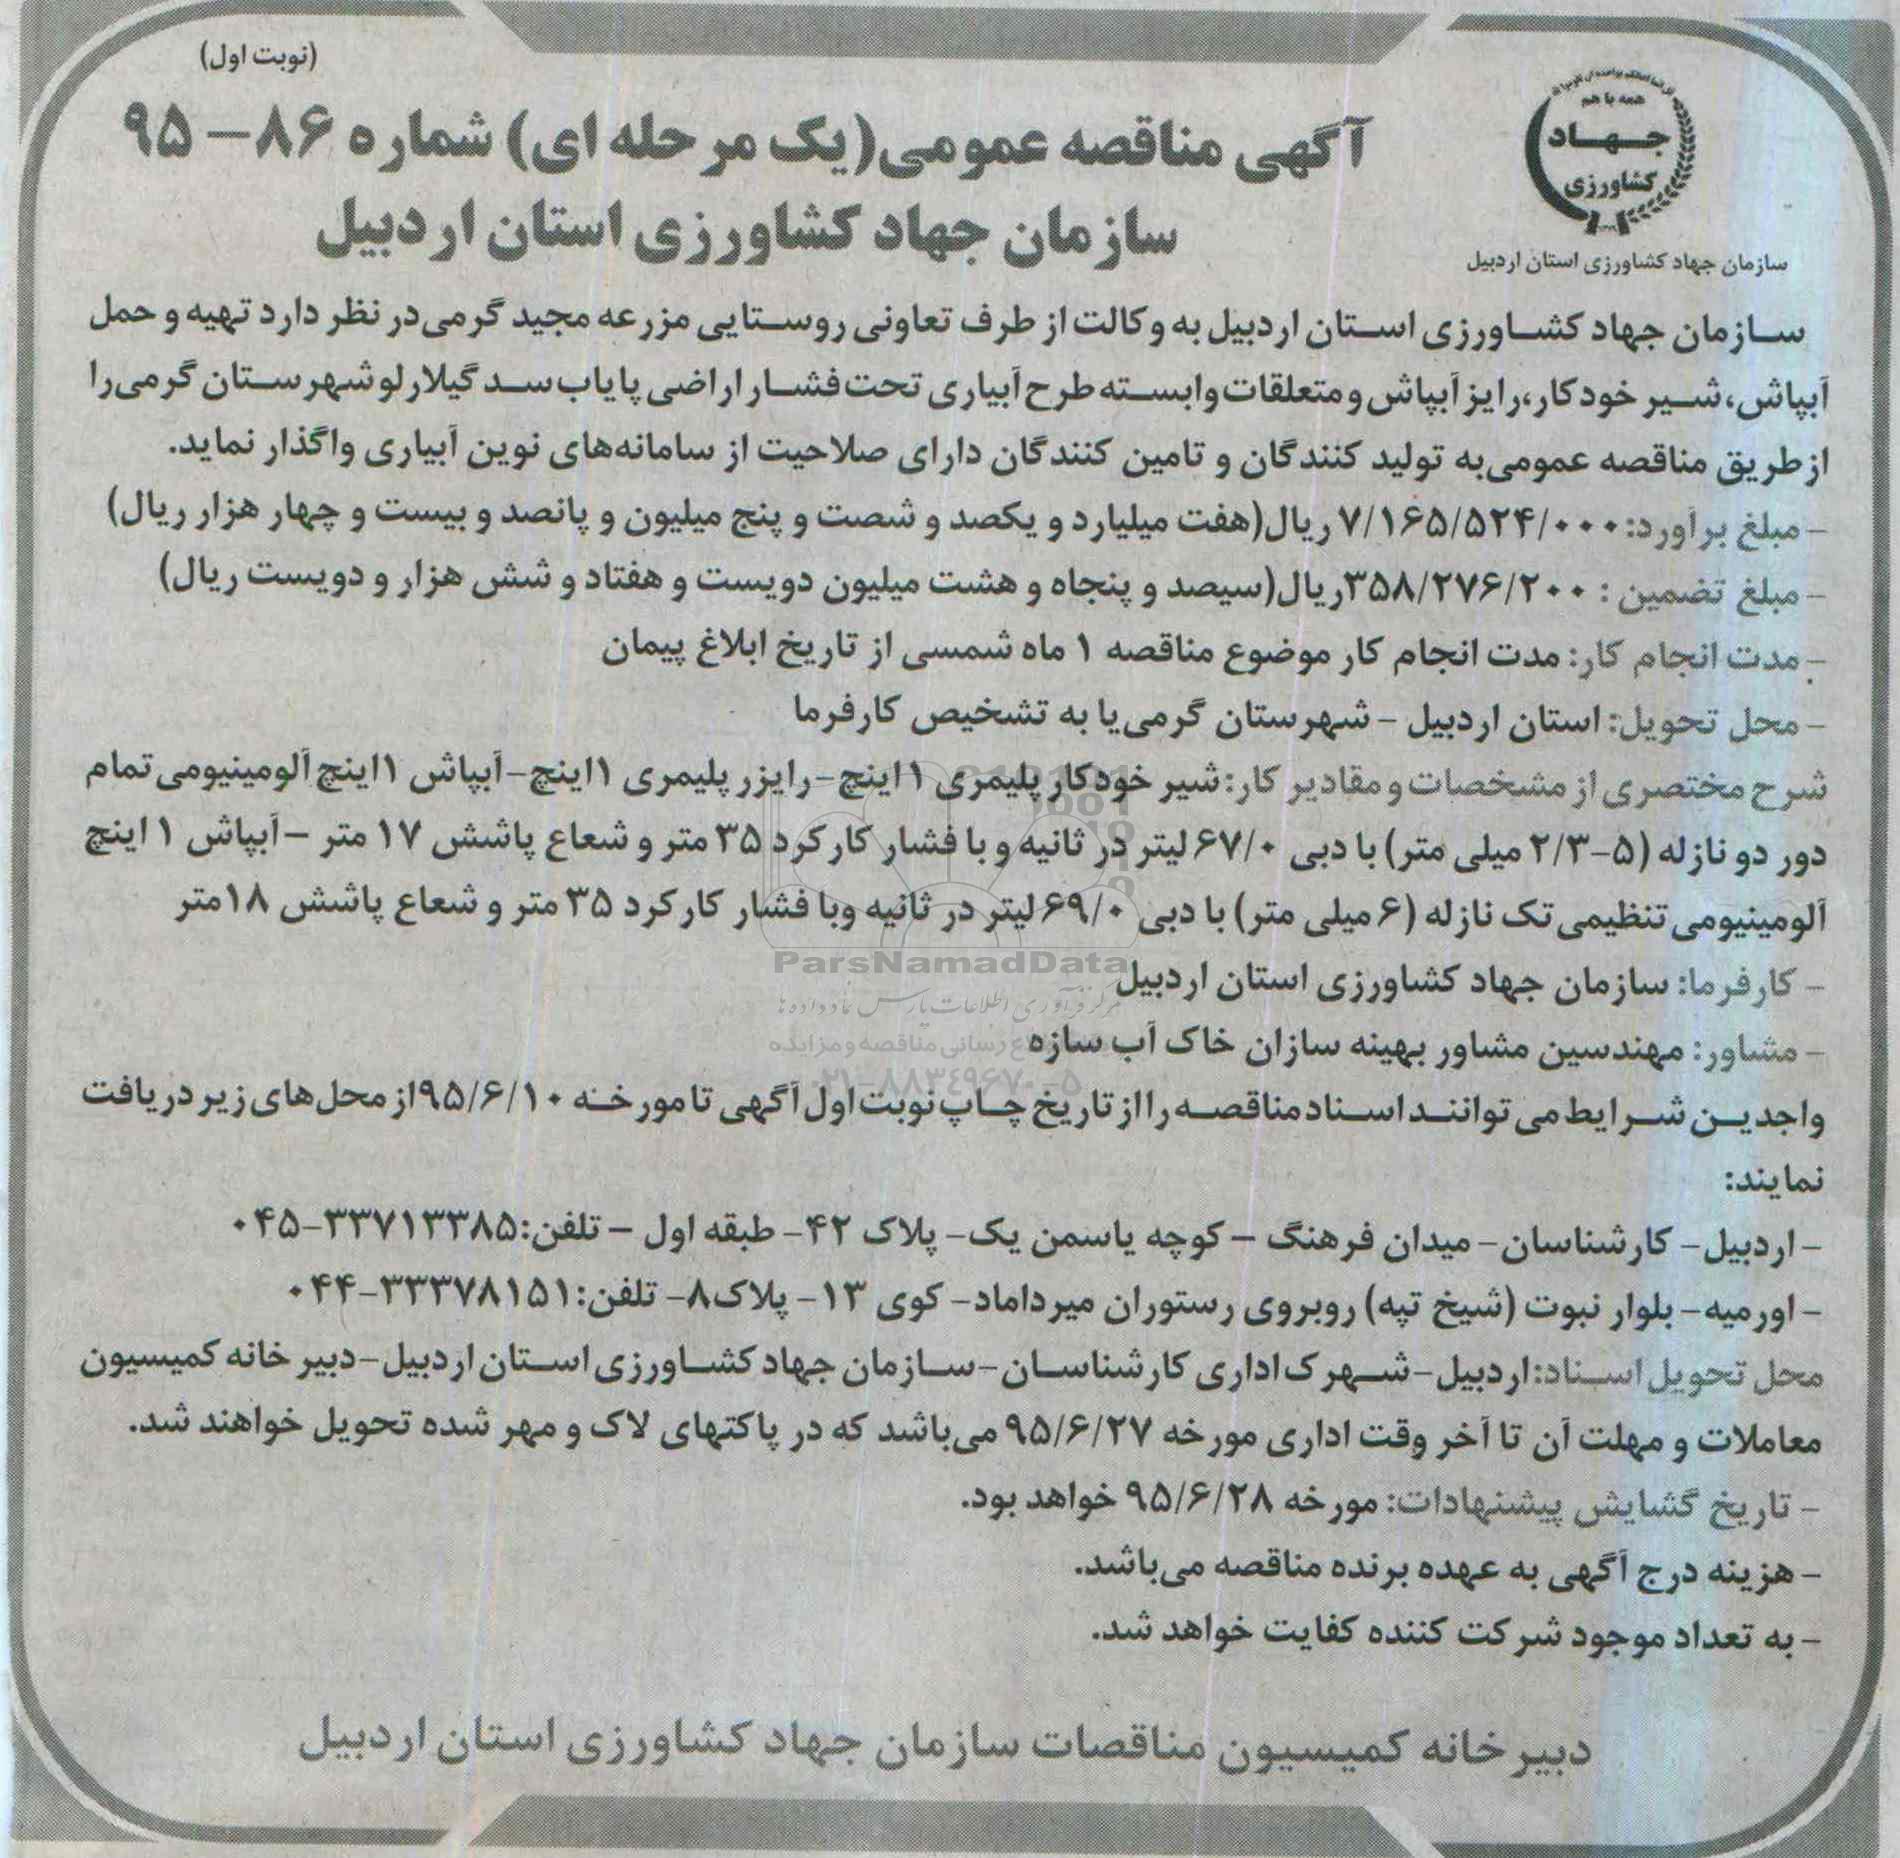 (نوبت اول)
همه با هم
جهاد
کشاورزی
سازمان جهاد کشاورزی استان اردبیل
آگهی مناقصه عمومی(یک مرحله ای) شماره ۸۶-۹۵
سازمان جهاد کشاورزی استان اردبیل
سازمان جهاد کشاورزی استان اردبیل به وکالت از طرف تعاونی روستایی مزرعه مجید گرمی در نظر دارد تهیه و حمل
آبپاش، شیر خودکار، رایز آبپاش و متعلقات وابسته طرح آبیاری تحت فشار اراضی پایاب سد گیلارلو شهرستان گرمی را
از طریق مناقصه عمومی به تولید کنندگان و تامین کنندگان دارای صلاحیت از سامانه‌های نوین آبیاری واگذار نماید.
- مبلغ برآورد: ۷/۱۶۵/۵۲۴/۰۰۰ ریال(هفت میلیارد و یکصد و شصت و پنج میلیون و پانصد و بیست و چهار هزار ریال)
- مبلغ تضمین : ۳۵۸/۲۷۶/۲۰۰ریال(سیصد و پنجاه و هشت میلیون دویست و هفتاد و شش هزار و دویست ریال)
- مدت انجام کار: مدت انجام کار موضوع مناقصه ۱ ماه شمسی از تاریخ ابلاغ پیمان
- محل تحویل: استان اردبیل - شهرستان گرمی یا به تشخیص کارفرما
شرح مختصری از مشخصات و مقادیر کار: شیر خودکار پلیمری ۱ اینچ-رایزر پلیمری ۱اینچ-آبپاش ۱اینچ آلومینیومی تمام
دور دو نازله (۵-۲/۳ میلی متر) با دبی ۶۷/۰ لیتر در ثانیه و با فشار کارکرد ۳۵ متر و شعاع پاشش ۱۷ متر -آبپاش ۱ اینچ
آلومینیومی تنظیمی تک نازله (۶ میلی متر) با دبی ۶۹/۰ لیتر در ثانیه وبا فشار کارکرد ۳۵ متر و شعاع پاشش ۱۸متر
ParsNamadData
- کارفرما: سازمان جهاد کشاورزی استان اردبیل
مرکز فرآوری اطلاعات پارس نماد داده ها
- مشاور: مهندسین مشاور بهینه سازان خاک آب سازه
رسانی مناقصه و مزایده
۰۲۱-۸۸۳۴۹۶۷۰-۵
واجدین شرایط می توانند اسناد مناقصه را از تاریخ چاپ نوبت اول آگهی تا مورخه ۹۵/۶/۱۰از محل‌های زیر دریافت
نمایند:
- اردبیل- کارشناسان- میدان فرهنگ - کوچه یاسمن یک- پلاک ۴۲- طبقه اول - تلفن:۳۳۷۱۳۳۸۵-۰۴۵
- اورمیه- بلوار نبوت (شیخ تپه) روبروی رستوران میرداماد- کوی ۱۳- پلاک۸- تلفن:۳۳۳۷۸۱۵۱-۰۴۴
محل تحویل اسناد: اردبیل-شهرک اداری کارشناسان-سازمان جهاد کشاورزی استان اردبیل-دبیرخانه کمیسیون
معاملات و مهلت آن تا آخر وقت اداری مورخه ۹۵/۶/۲۷ می‌باشد که در پاکتهای لاک و مهر شده تحویل خواهند شد.
- تاریخ گشایش پیشنهادات: مورخه ۹۵/۶/۲۸ خواهد بود.
- هزینه درج آگهی به عهده برنده مناقصه می‌باشد.
- به تعداد موجود شرکت کننده کفایت خواهد شد.
دبیرخانه کمیسیون مناقصات سازمان جهاد کشاورزی استان اردبیل